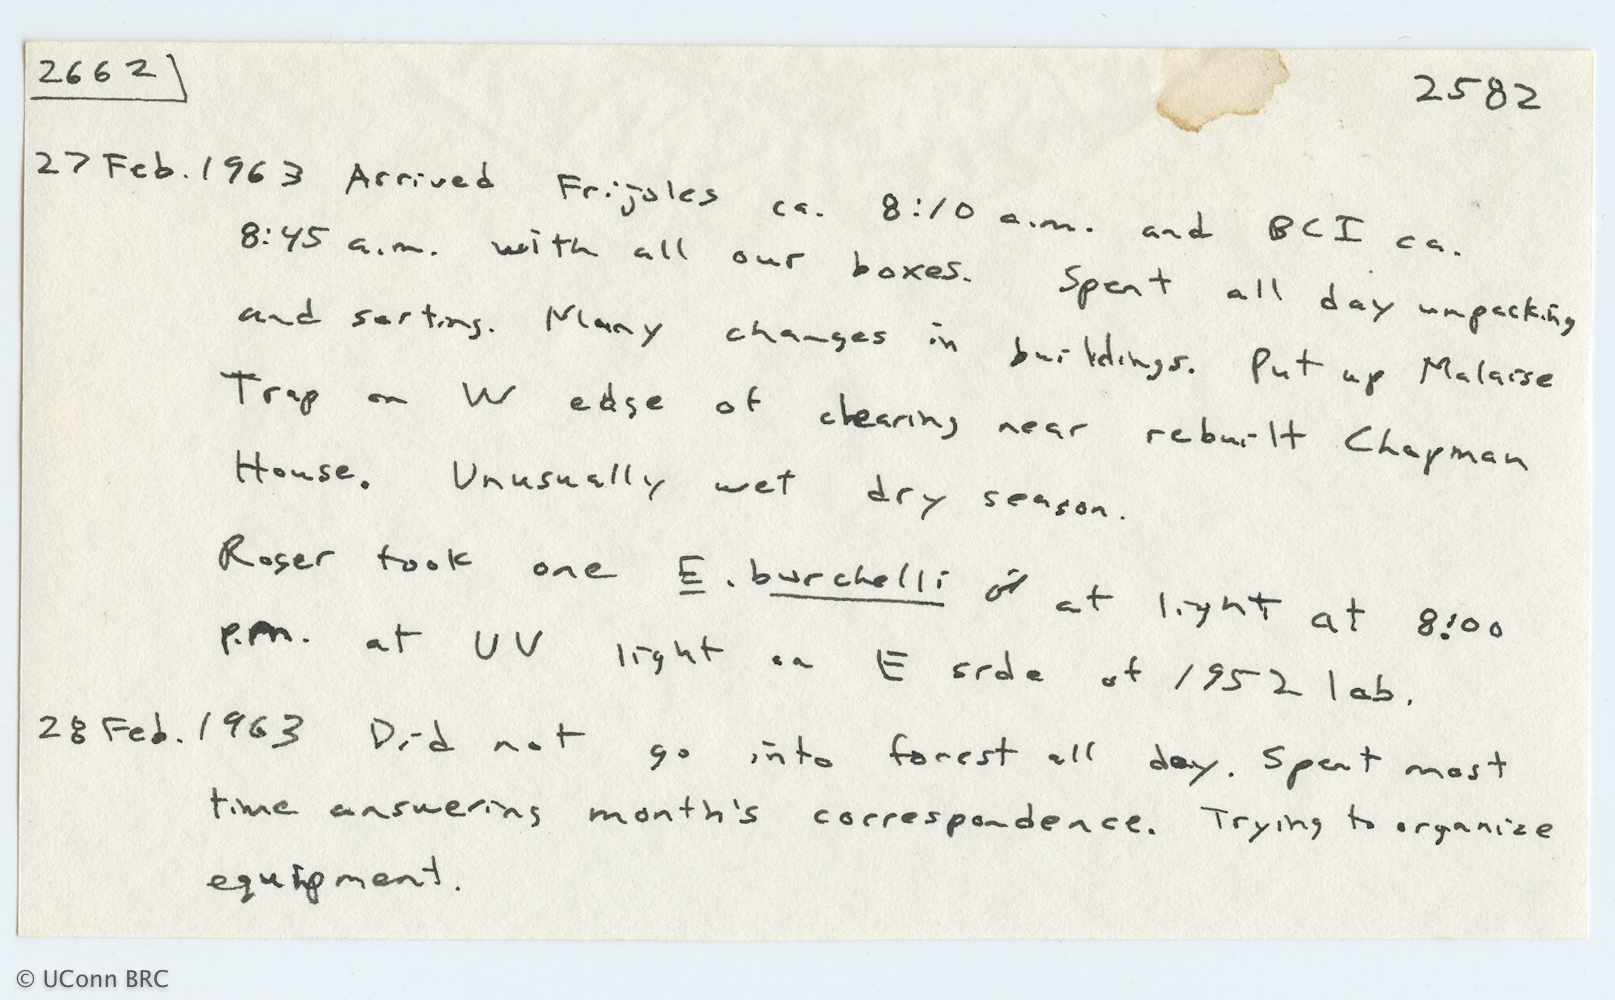 2662
2582
27 Feb. 1963 Arrived Frijoles ca. 8:10 a.m. and BCI ca.
8:45 a.m. with all our boxes. Spent all day unpacking
and sorting. Many changes in buildings. Put up Malaise
Trap on W edge of clearing near rebuilt Chapman
House. Unusually wet dry season.
Roger took one E. burchelli ♂ at light at 8:00
p.m. at UV light on E side of 1952 lab.
28 Feb. 1963 Did not go into forest all day. Spent most
time answering month's correspondence. Trying to organize
equipment.
© UConn BRC